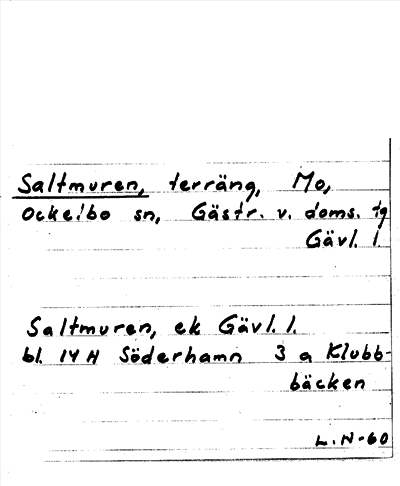 Saltmuren, terräng, Mo,
Ockelbo sn, Gästr. v. doms. tg
Gävl. l.
Saltmuren, ek Gävl. l.
bl. 14 H Söderhamn 3 a Klubb-
bäcken
L.N-60